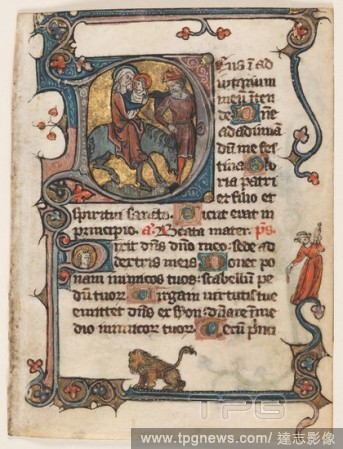 Deus ĩ ad
iutorium
meũ ĩten
de Dñe
ad adiuuã
dũ me fes
tina Glo
ria patri
et filio et
spiritui sancto. Sicut erat in
principio. a. Beata mater. ps.
Dixit dñs dño meo: sede a
dextris meis Donec po
nam inimicos tuos: scabellũ pe
dũ tuorꝝ Virgam uirtutis tue
emittet dñs ex syon: dñare ĩ me
dio inimicorꝝ tuorꝝ. Tecũ princi
TPG
www.tpgnews.com / 達志影像